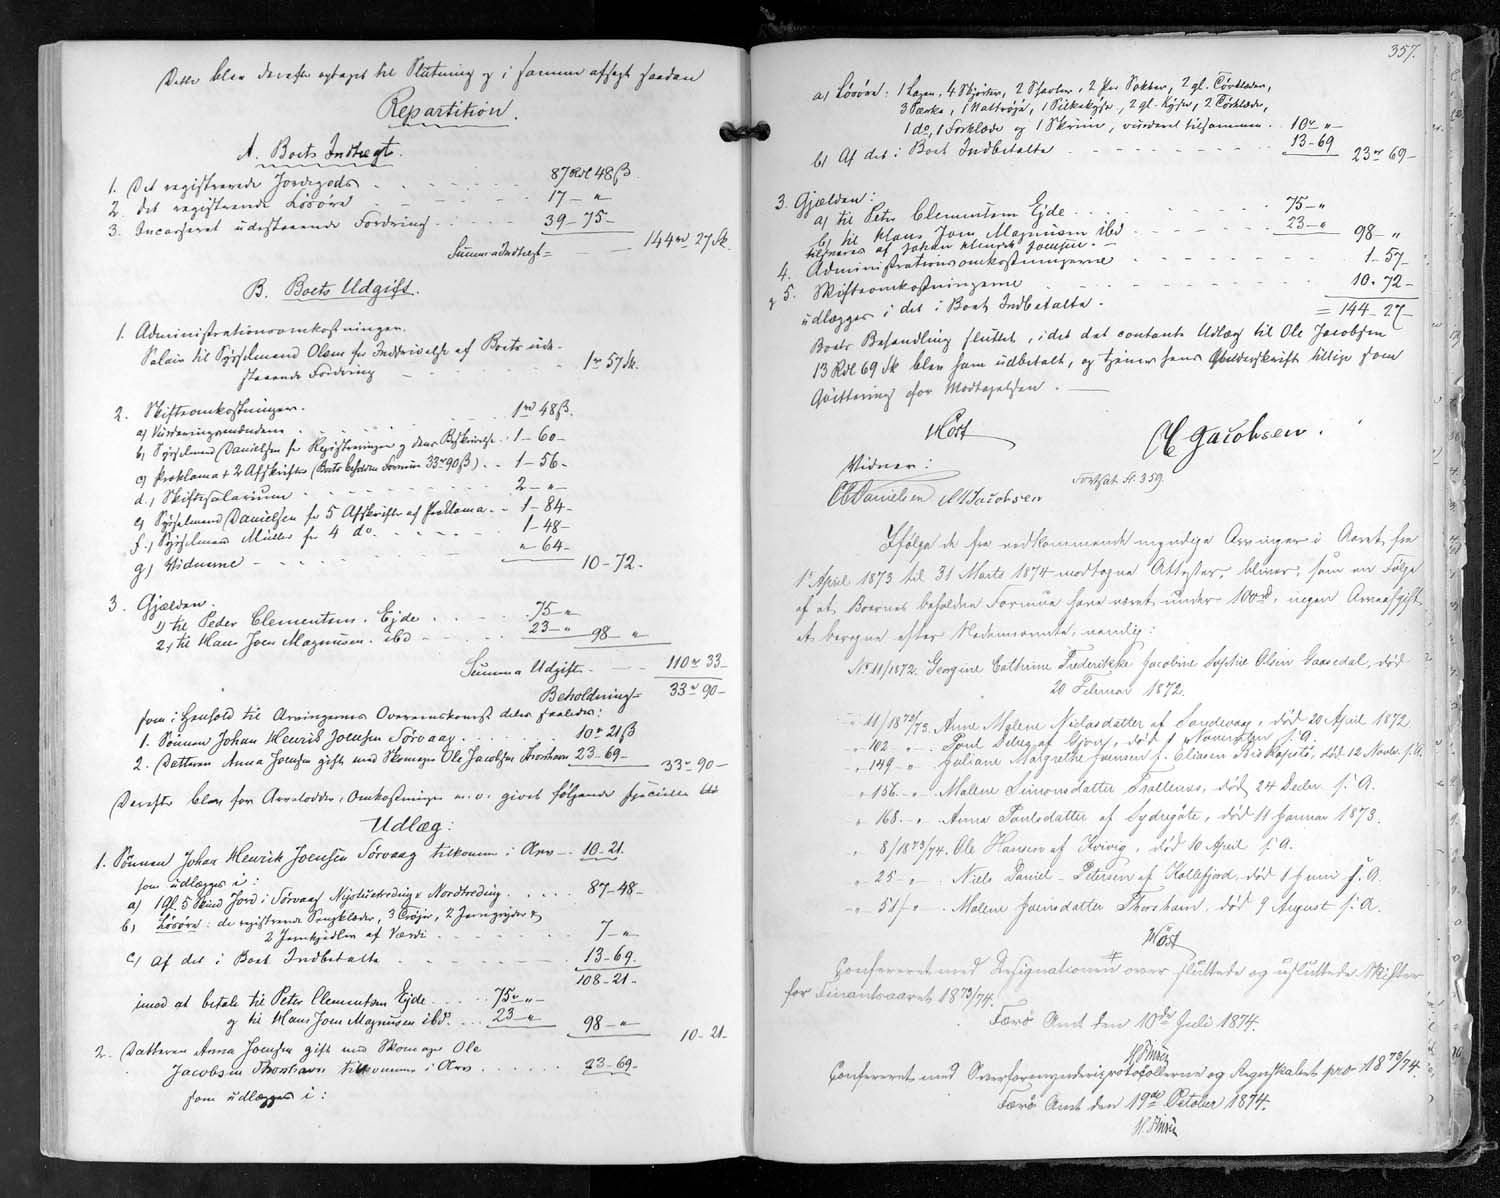 Dette blev derefter optaget til Slutning og i samme afsagt saadan
Repartition.
A. Boets Indtægt.
1. Det registrerede Jordegods 87 Rdl 48 ß.
2. det registrerede Løsøre 17 - "
3. Incasseret udestaaende Fordring 39 - 75 -
Summa Indtægt = 144 rd 27 Sk.
B. Boets Udgift.
1. Administrationsomkostninger.
Salair til Sysselmand Olsen for Inddrivelse af Boets ude-
staaende Fordring 1 rd 57 Sk.
2. Skifteomkostninger.
a) Vurderingsmændene 1 rd 48 ß.
b) Sysselmand Danielsen for Registreringen og dens Beskrivelse 1 - 60 -
c) Proklama + 2 Afskrifter (Boets beholdne Formue 33 rd 90 ß) 1 - 56 -
d.) Skiftesalarium 2 - " -
e) Sysselmand Danielsen for 5 Afskrifter af Proklama 1 - 84 -
f.) Sysselmand Müller for 4 do. 1 - 48 -
g) Vidnerne " 64 -
10 - 72 -
3. Gjælden.
1) til Peder Clementsen, Ejde 75 - "
2) til Hans Joen Magnusen ibd 23 - " 98 - "
Summa Udgift 110 rd 33 -
Beholdning = 33 rd 90 -
som i Henhold til Arvingernes Overenskomst deles saaledes:
1. Sønnen Johan Henrik Joensen Sørvaag 10 rd 21 ß
2. Datteren Anna Joensen gift med Skomager Ole Jacobsen Thorshavn 23 - 69 - 33 rd 90 -
Derefter blev for Arvelodder, Omkostninger m.v. givet følgende specielle
Udlæg:
1. Sønnen Johan Henrik Joensen Sørvaag tilkommer i Arv 10 - 21.
som udlægges i:
a) 1 Gl. 5 Skind Jord i Sørvaag Nystuetreding Nordtreding 87 - 48 -
b) Løsøre: de registrerede Sengklæder, 3 Trøjer, 2 Jerngryder &
2 Jernkjedler af Værdi 7 - "
c) af det i Boet Indbetalte 13 - 69.
108 - 21 -
imod at betale til Peter Clementsen Ejde 75 rd " -
og til Hans Joen Magnusen ibd. 23 - " 98 - " 10 - 21 -
2. Datteren Anna Joensen gift med Skomager Ole
Jacobsen Thorshavn tilkommer i Arv 23 - 69 -
som udlægges i:
357.
a) Løsøre: 1 Lagen, 4 Skjorter, 2 Skorter, 2 Par Sokker, 2 gl. Tørklæder,
3 Særke, 1 Nattrøje, 1 Silkekyse, 2 gl. Kyser, 2 Tørklæde,
1 do, 1 Forklæde og 1 Skriin, vurderet tilsammen 10 rd " -
b) Af det i Boet Indbetalte 13 - 69 23 rd 69 -
3. Gjælden:
a) til Peter Clementsen Ejde 75 - "
b) til Hans Joen Magnusen ibd 23 - " 98 - "
tilsvares af Johan Henrik Joensen.
4. Administrationsomkostningerne 1 - 57 -
og 5. Skifteomkostningerne 10 - 72 -
udlægges i det i Boet Indbetalte. = 144 - 27 -
Boets Behandling sluttet, idet det contante Udlæg til Ole Jacobsen
13 Rdl 69 Sk blev ham udbetalt, og tjener hans Underskrift tillige som
Qvittering for Modtagelsen.
Høst
Jacobsen.
Vidner:
Danielsen Jacobsen
Fortsat fl. 359.
Ifølge de fra vedkommende myndige Arvinger i Aaret fra
1 April 1873 til 31 Marts 1874 modtagne Attester, bliver, som en Følge
af at Boernes beholdne Formue have været under 100 rd, ingen Arveafgift
at beregne efter Nedennævnte, nemlig:
No 11/1872. Georgine Cathrine Frederikke Jacobine Sophie Olsen Gaasedal, død
20 Februar 1872.
" 11/1872/73. Anne Malene Niclasdatter af Sandevaag, død 20 April 1872
" 102 " Poul Deleg af Gjov, død 1 November s. A.
" 149 " Juliane Margrethe Joensen f. Eliasen Kirkebø, død 12 Novbr. s. A.
" 156 " Malene Simonsdatter Trøllenæs, død 24 Decbr. s. A.
" 168 " Anna Poulsdatter af Sydregøte, død 11 Januar 1873.
" 8/1873/74. Ole Hansen af Kvivig, død 10 April s. A.
" 25 " Niels Daniel Petersen af Kollefjord, død 1 Juni s. A.
" 51 " Malene Joensdatter Thorshavn, død 9 August s. A.
Høst
Confereret med Designationen over sluttede og usluttede Skifter
for Finantsaaret 1873/74.
Færø Amt den 10de Juli 1874.
Confereret med Overformynderiprotocollerne og Regnskabet pro 1873/74.
Færø Amt den 19de October 1874.